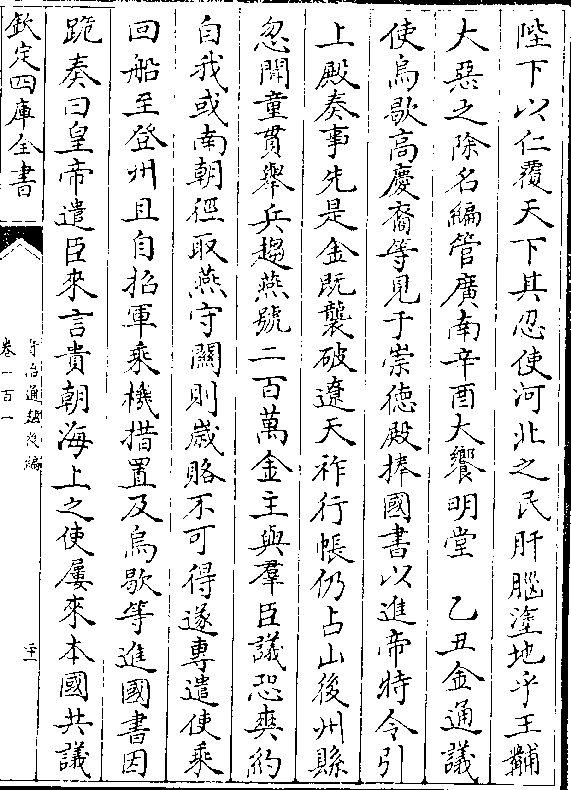 陛下以仁覆天下其忍使河北之民肝腦塗地乎王黼
大惡之除名編管廣南辛酉大饗明堂　乙丑金通議
使烏歇高慶裔等見于崇徳殿捧國書以進帝特令引
上殿奏事先是金既襲破遼天祚行帳仍占山後州縣
忽聞童貫舉兵趨燕號二百萬金主與羣臣議恐爽約
自我或南朝徑取燕守關則歳賂不可得遂専遣使乘
回船至登州且自招軍乘機措置及烏歇等進國書因
跪奏曰皇帝遣臣來言貴朝海上之使屢來本國共議
欽定四庫全書
資治通鑑後編
卷一百一
二十一